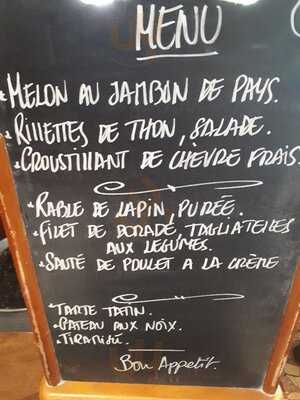 MENU
• MELON AU JAMBON DE PAYS.
• RILLETTES DE THON, SALADE.
• CROUSTILLANT DE CHÈVRE FRAIS.
• RABLE DE LAPIN, PURÉE.
• FILET DE DORADE, TAGLIATELLES
AUX LÉGUMES.
• SAUTÉ DE POULET A LA CRÈME
• TARTE TATIN.
• GATEAU AUX NOIX.
• TIRAMISÚ.
BON APPETIT.